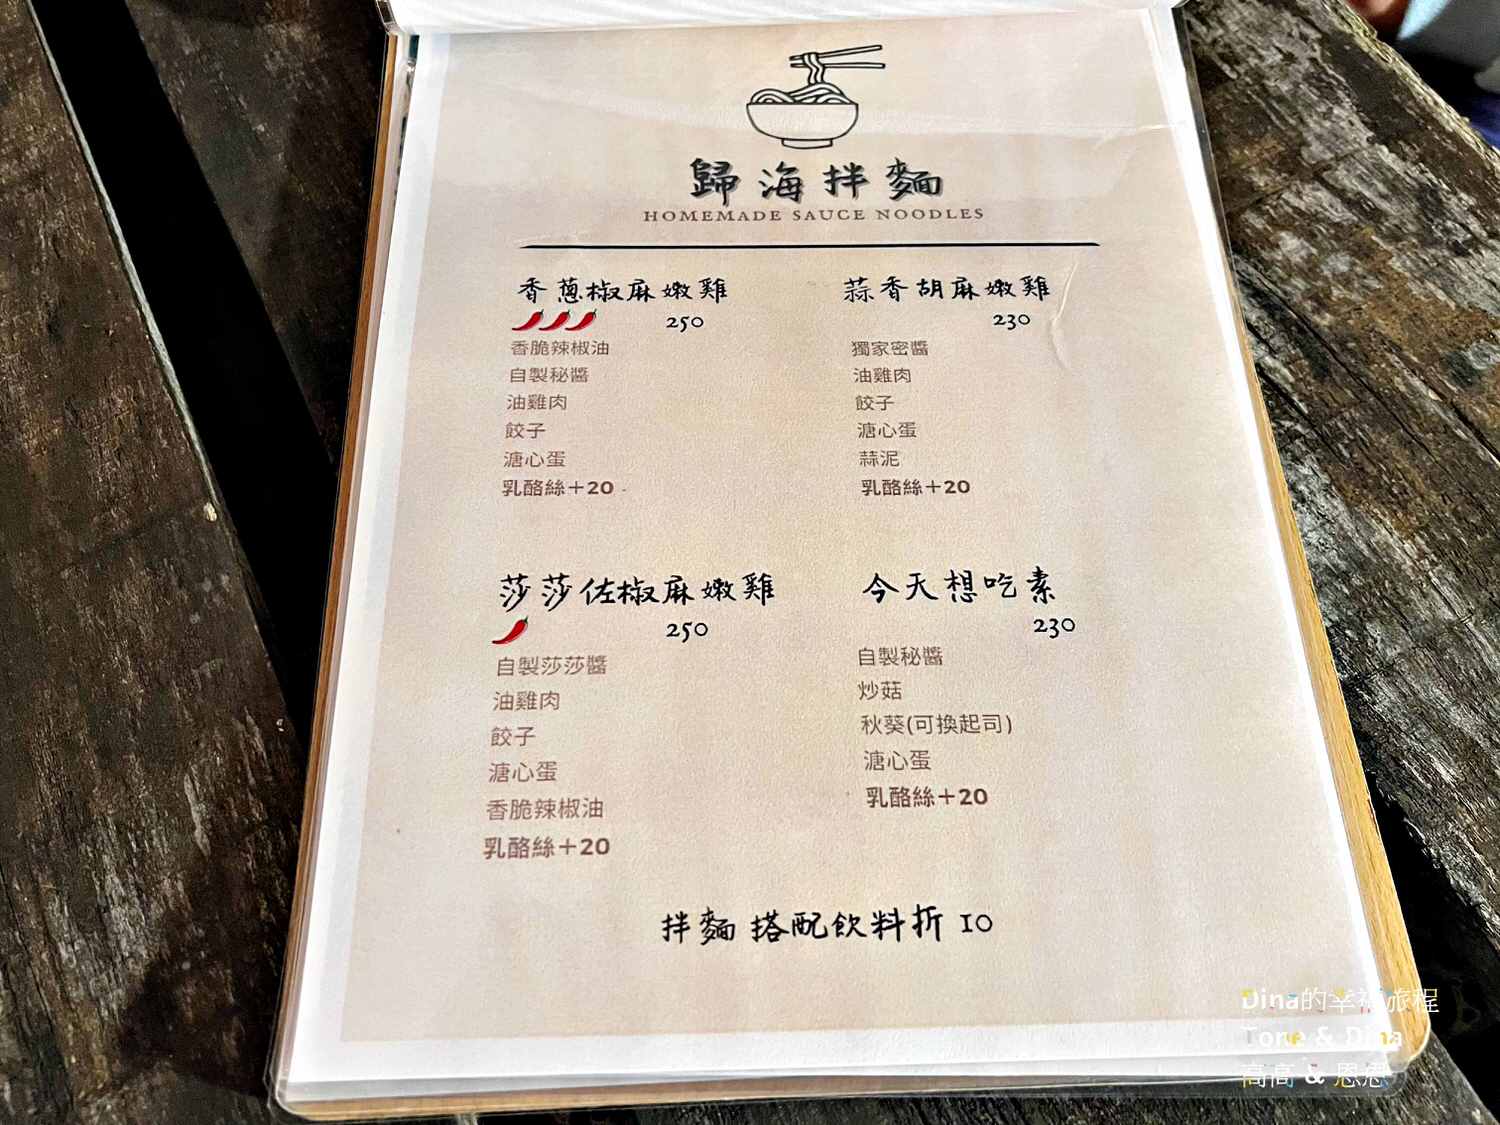 歸海拌麵
HOMEMADE SAUCE NOODLES
香蔥椒麻嫩雞
250
香脆辣椒油
自製秘醬
油雞肉
餃子
溏心蛋
乳酪絲+20
蒜香胡麻嫩雞
230
獨家密醬
油雞肉
餃子
溏心蛋
蒜泥
乳酪絲+20
莎莎佐椒麻嫩雞
250
自製莎莎醬
油雞肉
餃子
溏心蛋
香脆辣椒油
乳酪絲+20
今天想吃素
230
自製秘醬
炒菇
秋葵(可換起司)
溏心蛋
乳酪絲+20
拌麵 搭配飲料折 10
Dina的幸福旅程
Tone & Dina
高高 & 恩恩